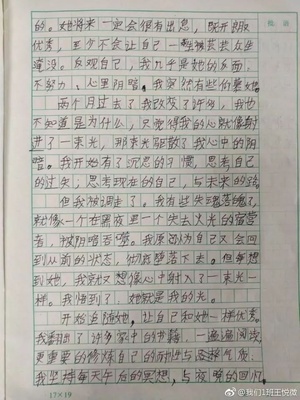 的。她将来一定会很有出息，既开朗又
优秀，至少不会让自己一
淹没。反观自己，我几乎是她的反面，
不努力，心里阴暗。我突然有些
两个月过去了我改变了许多，我也
不知道是为什么，只觉得我的心就像射
进了一束光，那束光驱散了我心中的阴
暗。我开始有了沉思的习惯，思考自己
的过失，思考现在的自己，与未来的路。
但我被调走了。我有些失魂落魄了，
就像一个在黑夜里一个失去火光的
者，被阴暗吞噬。我原以为自己又会回
到从前的状态，彻底堕落下去。但每想
到她，我就又想像心中射入了一束光一
样。我悟到了，她就是我的光。
开始追随她，让自己和她一样优秀。
我翻出了许多家中的书籍，一遍遍阅读，
更重要的修炼自己的耐性与
我坚持每天午后的冥想，与夜晚的回忆
17×19
@我们1班王悦微